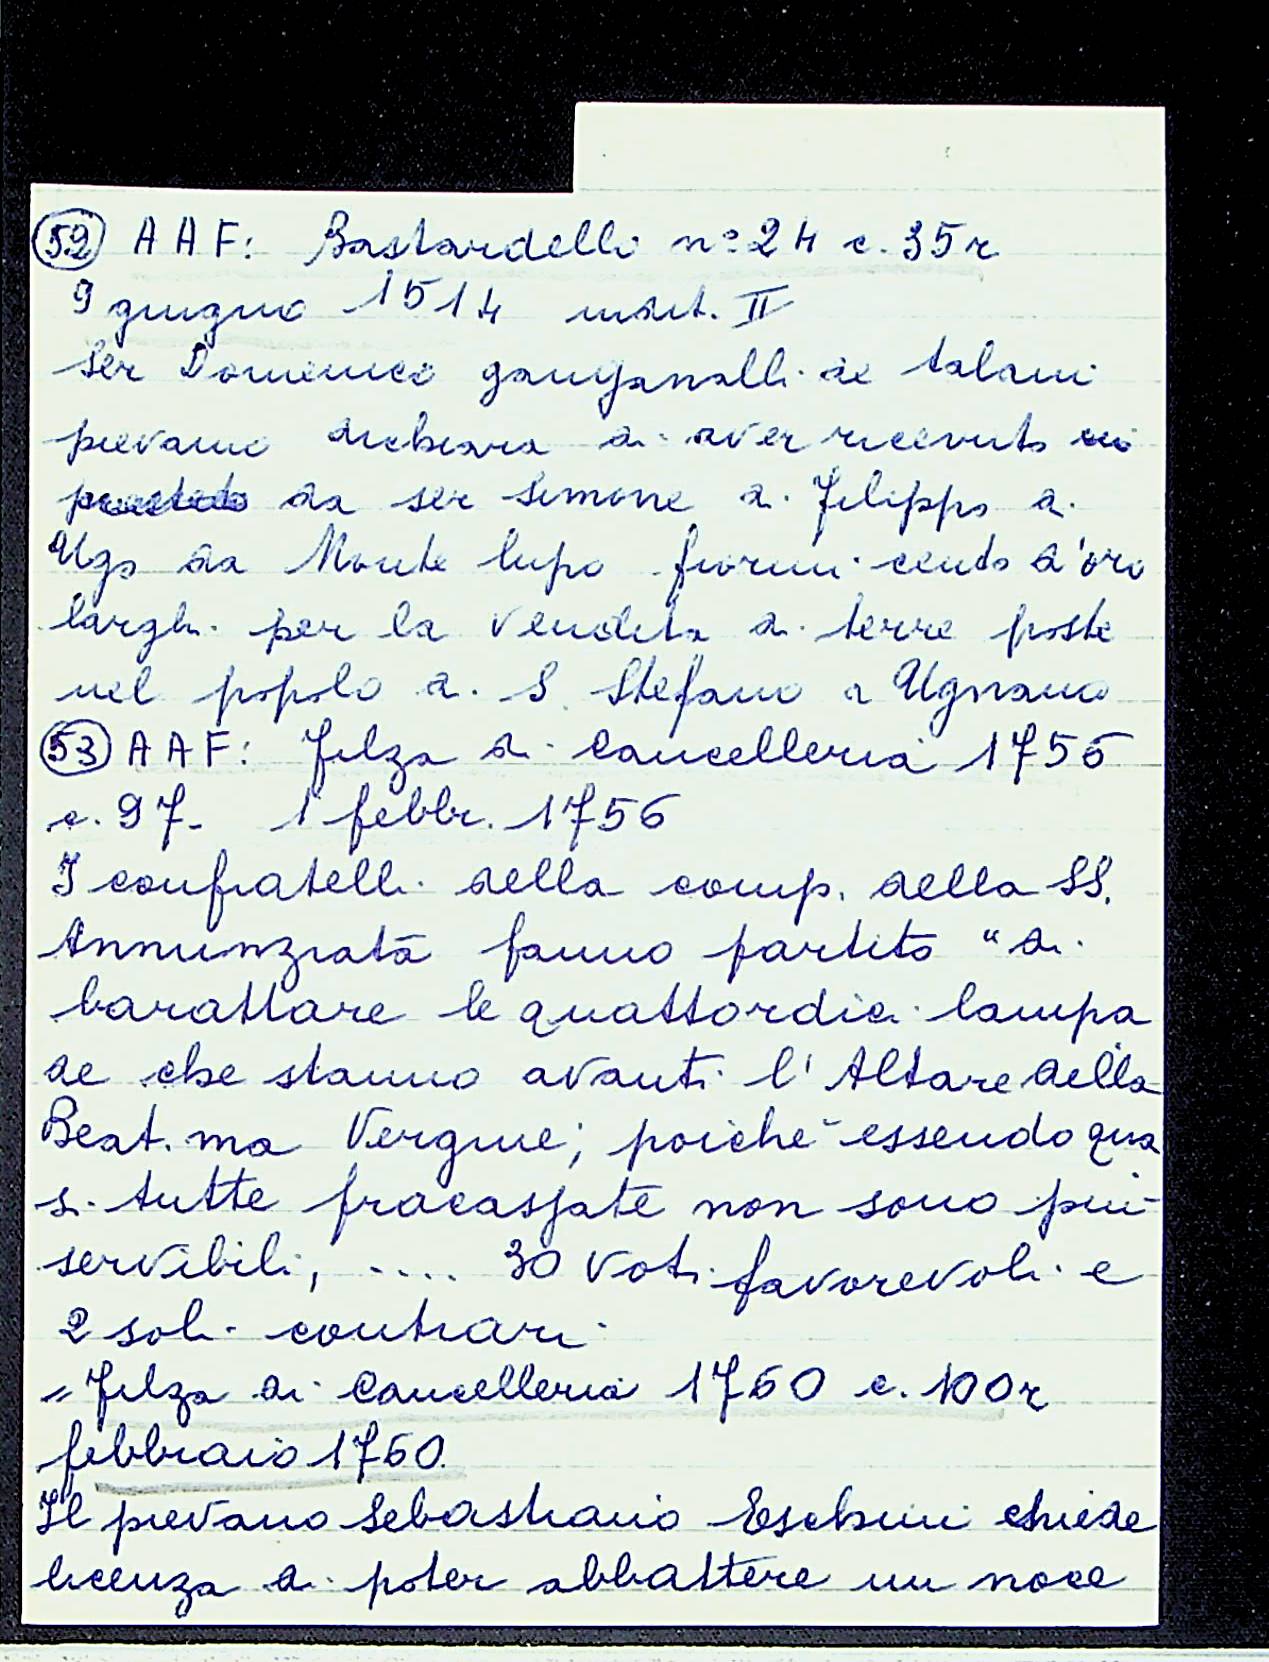 52 A A F: Bastardello n° 24 c. 35r
9 giugno 1514 indit. II
Ser Domenico de talani
pievano dichiara di aver ricevuto
da ser Simone di Filippo di
Ugo da Monte lupo fiorini cento d'oro
larghi per la vendita di terre poste
nel popolo di S. Stefano a Ugnano
53 A A F: Filza di Cancelleria 1756
c. 97- 1 febbr. 1756
I confratelli della comp. della SS.
Annunziata fanno partito "di
barattare le quattordici lampa
de che stanno avanti l'Altare della
Beat.ma Vergine; poiché essendo qua
si tutte fracassate non sono più
servibili, .... 30 voti favorevoli e
2 soli contrari
" Filza di Cancelleria 1760 c. 100r
febbraio 1760.
Il pievano Sebastiano Eschini chiede
licenza di poter abbattere un noce